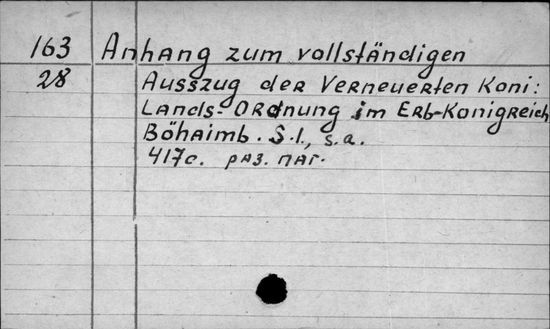 163 Anhang zum vollständigen
28 Ausszug der Verneuerten Koni:
Lands-Ordnung im Erb-Konigreich
Böhaimb. S.l., s.a.
417c. раз. паг.